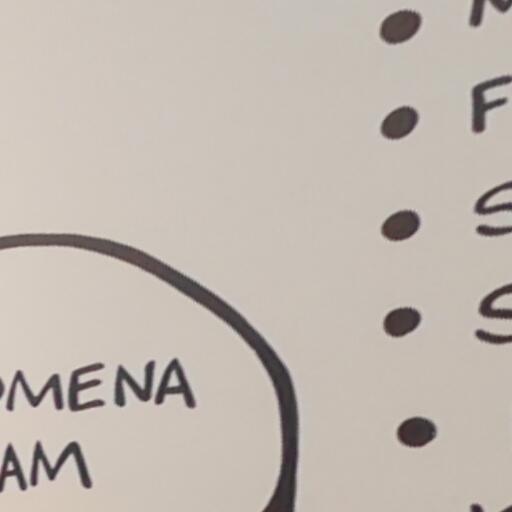 OMENA
AM
M
F
S
S